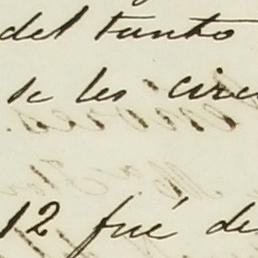 del tanto
se les circu
12 fué de